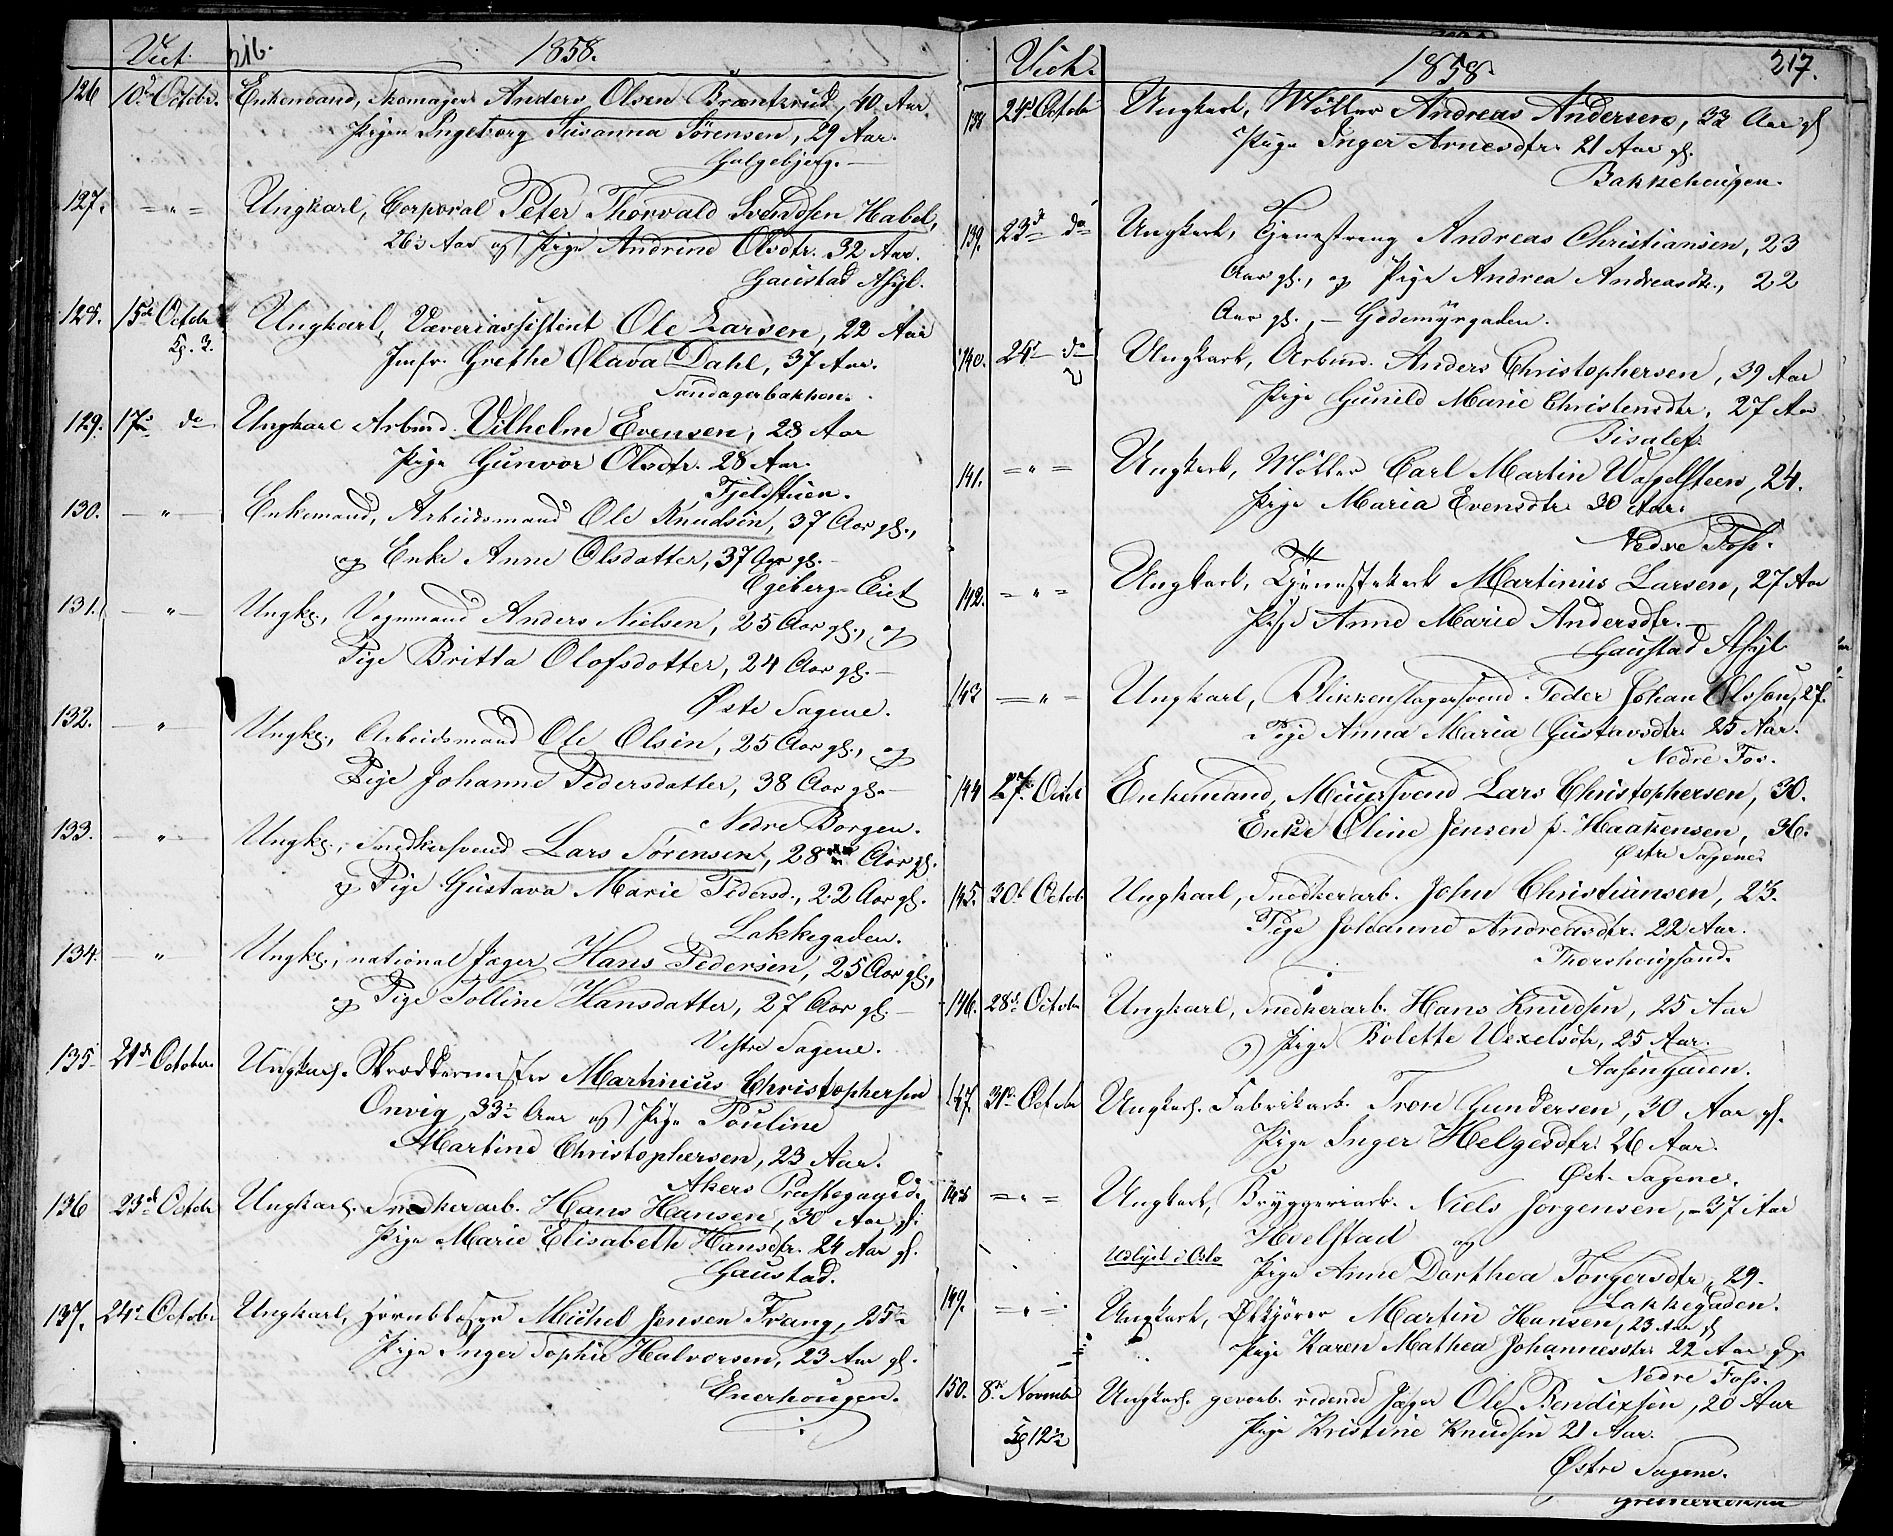 Viet. 216. 1858.
126 10de Octobr. Enkemand, Skomager Anders Olsen Brantzrud, 40 Aar.
Pigen Ingeborg Susanna Sørensen, 29 Aar.
Galgebjerg.
127. = " = Ungkarl, Corporal Peter Thorvald Svendsen Habel,
26½ Aar og Pige Andrine Olsdtr. 32 Aar.
Gaustad Asyl.
128. 15de Octobr Ungkarl, Væveriassistent Ole Larsen, 22 Aar
Kl. 3. Jmfr. Grethe Olava Dahl, 37 Aar.
Sandagerbakken.
129. 17de do Ungkarl Arbmd. Vilhelm Evensen, 28 Aar
Pige Gunvor Olsdtr. 28 Aar.
Fjeldstuen.
130. — " — Enkemand, Arbeidsmand Ole Knudsen, 37 Aar gl.,
og Enke Anne Olsdatter, 37 Aar gl. —
Egeberg-Eiet
131. — " — Ungk., Vognmand Anders Nielsen, 25 Aar gl., og
Pige Britta Olofsdotter, 24 Aar gl. —
Østre Sagene.
132. — " — Ungk., Arbeidsmand Ole Olsen, 25 Aar gl., og
Pige Johanne Pedersdatter, 38 Aar gl. —
Nedre Borgen.
133. — " — Ungk., Snedkersvend Lars Sørensen, 28 Aar gl.
og Pige Gustava Marie Pedersd., 22 Aar gl.
Lakkegaden.
134. — " Ungk., national Jæger Hans Pedersen, 25 Aar gl.,
og Pige Golline Hansdatter, 27 Aar gl. —
Vestre Sagene.
135 21de October Ungkarl. Skræddermester Martinius Christophersen
Onvig, 33½ Aar og Pige Pouline
Martine Christophersen, 23 Aar.
Akers Præstegaard.
136 23de Octobr Ungkarl. Snedkerarb. Hans Hansen, 30 Aar gl.
Pige Marie Elisabeth Hansdtr. 24 Aar gl.
Gaustad.
137. 24de Octobr Ungkarl, Hornblæser Michel Jensen Trang, 25½
Pige Inger Sophie Halvorsen, 23 Aar gl.
Enerhougen.
Viet. 1858. 217.
138 24de Octobr Ungkarl, Møller Andreas Andersen, 33 Aar gl
Pige Inger Arnesdtr 21 Aar gl.
Bakkehougen.
139. 23de do Ungkarl, Tjenestreng Andreas Christiansen, 23
Aar gl., og Pige Andrea Andreasdtr., 22
Aar gl., — Grdemyrgaden.
140. 24de do Ungkarl, Arbmd. Anders Christophersen, 39 Aar
Pige Gunild Marie Christensdtr, 27 Aar
Bislet.
141. = " = Ungkarl, Møller Carl Martin Wagelsteen, 24.
Pige Maria Evensdtr 30 Aar.
Nedre Foss.
142. = " = Ungkarl, Tjenestekarl Martinius Larsen, 27 Aar
Pige Anne Marie Andersdtr. —
Gaustad Asyl
143 = " = Ungkarl, Blikkenslagersvend Peder Johan Olsson, 27.
Pige Anna Maria Gustavsdtr 25 Aar.
Nedre Fos.
144 27de Octbr Enkemand, Muursvend Lars Christophersen, 30.
Enke Oline Jensen f. Haakensen, 36.
Østre Sagene.
145. 30te Octob Ungkarl, Snedkerarb. John Christiansen, 23.
Pige Johanne Andreasdtr. 22 Aar.
Thorshougsund.
146. 28de Octobr Ungkarl, Snedkerarb. Hans Knudsen, 25 Aar
og Pige Bolette Wexelsdtr, 25 Aar.
Aasengaden.
147. 31te Octobr Ungkarl. Fabrikarb. Tron Gundersen, 30 Aar gl.
Pige Inger Helgesdtr. 26 Aar.
Øst. Sagene.
148 = " = Ungkarl, Bryggeriarb. Niels Jørgensen, 37 Aar
Hoelstad og
Udlyst i Oslo Pige Anne Dorthea Torgersdtr, 29.
Lakkegaden.
149. = " = Ungkarl, Ølkjører Martin Hansen, 23 Aar gl
Pige Karen Mathea Johannesdtr 22 Aar gl.
Nedre Foss.
150. 8de Novembr Ungkarl. gevorb. ridende Jæger Ole Bendixsen, 20 Aar
Kl 12½ Pige Kristine Knudsen 21 Aar.
Østre Sagene.